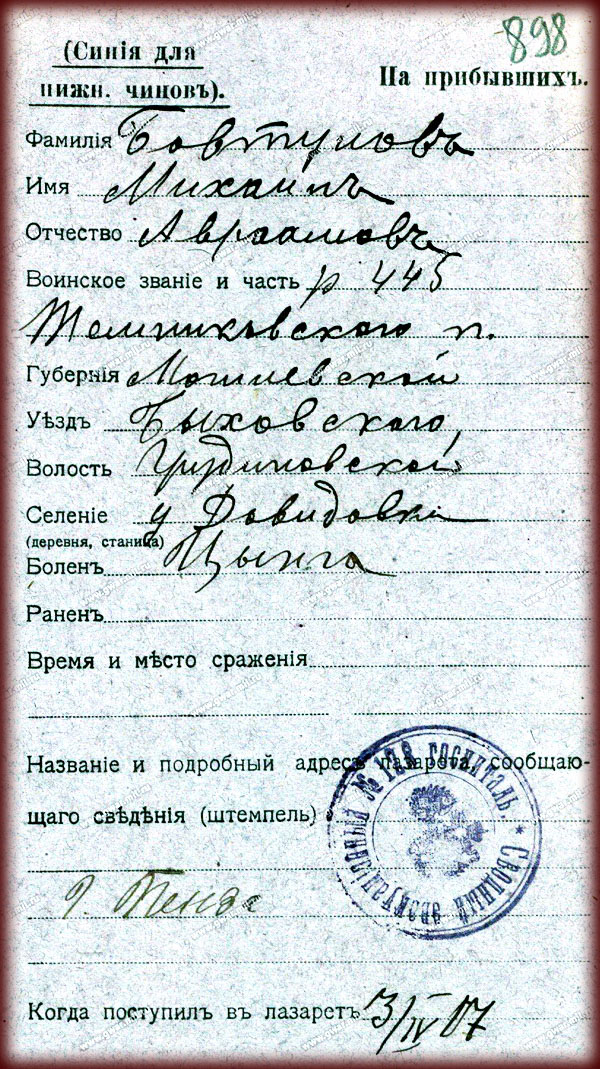 898
(Синія для
нижн. чиновъ).
На прибывшихъ.
Фамилія Бовтуновъ
Имя Михаилъ
Отчество Авраамовъ
Воинское званіе и часть р 445
Темниковского п.
Губернія Могилевской
Уѣздъ Быховского,
Волость Грудиновской
Селеніе у Довидовки
(деревня, станица)
Боленъ Цынга
Раненъ
Время и мѣсто сраженія
Названіе и подробный адресъ лазарета, сообщаю-
щаго свѣдѣнія (штемпель)
Сводный эвакуаціонный № 128 госпиталь. *
г. Пенза
Когда поступилъ въ лазаретъ 3/IV 07